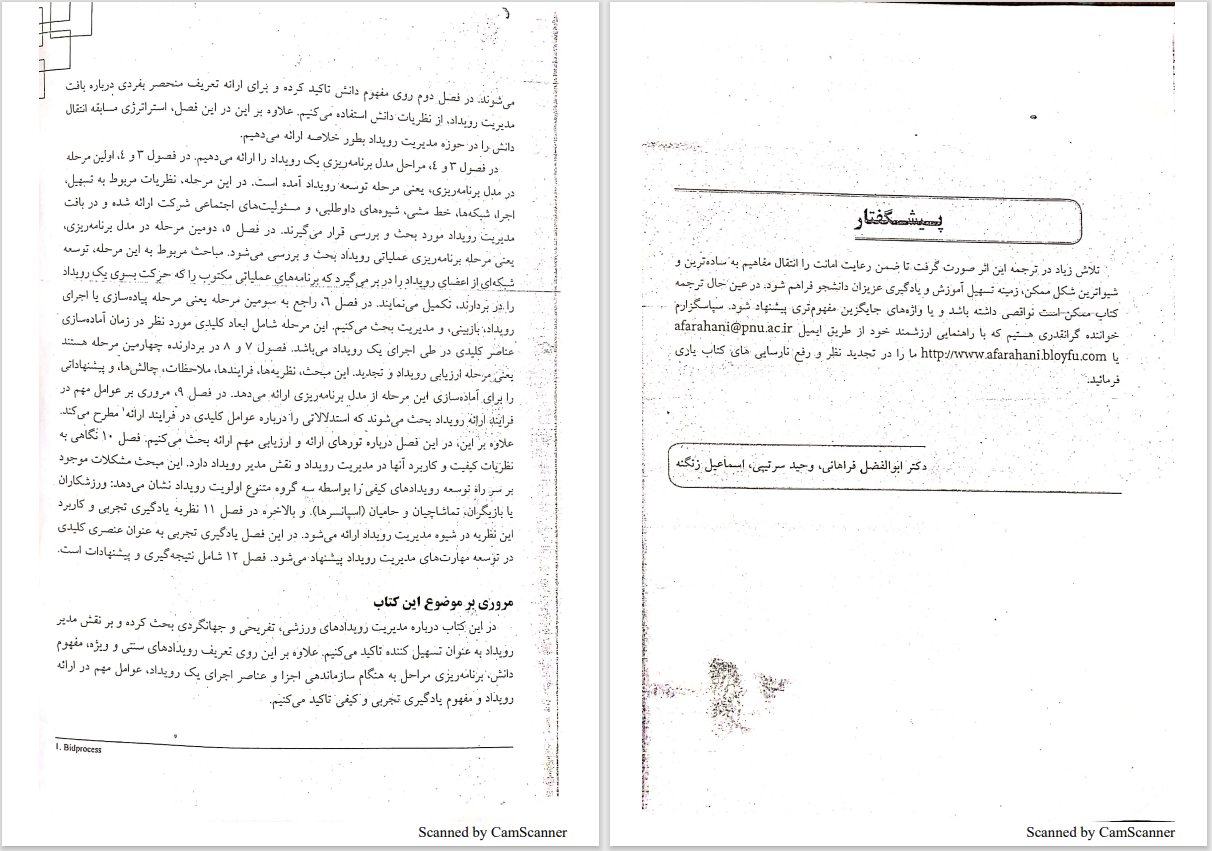 پیشگفتار
تلاش زیاد در ترجمه این اثر صورت گرفت تا ضمن رعایت امانت را انتقال مفاهیم به ساده‌ترین و
شیواترین شکل ممکن، زمینه تسهیل آموزش و یادگیری عزیزان دانشجو فراهم شود. در عین حال ترجمه
کتاب ممکن است نواقصی داشته باشد و یا واژه‌های جایگزین مفهوم‌تری پیشنهاد شود. سپاسگزارم
خواننده گرانقدری هستیم که با راهنمایی ارزشمند خود از طریق ایمیل afarahani@pnu.ac.ir
یا http://www.afarahani.bloyfu.com ما را در تجدید نظر و رفع نارسایی های کتاب یاری
فرمائید.
دکتر ابوالفضل فراهانی، وحید سرتیپی، اسماعیل زنگنه
Scanned by CamScanner
می‌شوند. در فصل دوم روی مفهوم دانش تاکید کرده و برای ارائه تعریف منحصر بفردی درباره بافت
مدیریت رویداد، از نظریات دانش استفاده می‌کنیم. علاوه بر این در این فصل، استراتژی مسابقه انتقال
دانش را در حوزه مدیریت رویداد بطور خلاصه ارائه می‌دهیم.
در فصول ۳ و ٤، مراحل مدل برنامه‌ریزی یک رویداد را ارائه می‌دهیم. در فصول ۳ و ٤، اولین مرحله
در مدل برنامه‌ریزی، یعنی مرحله توسعه رویداد آمده است. در این مرحله، نظریات مربوط به تسهیل،
اجرا، شبکه‌ها، خط مشی، شیوه‌های داوطلبی، و مسئولیت‌های اجتماعی شرکت ارائه شده و در بافت
مدیریت رویداد مورد بحث و بررسی قرار می‌گیرند. در فصل ٥، دومین مرحله در مدل برنامه‌ریزی،
یعنی مرحله برنامه‌ریزی عملیاتی رویداد بحث و بررسی می‌شود. مباحث مربوط به این مرحله، توسعه
شبکه‌ای از اعضای رویداد را در بر می‌گیرد که برنامه‌های عملیاتی مکتوب را که حرکت بسوی یک رویداد
را در بردارند، تکمیل می‌نمایند. در فصل ٦، راجع به سومین مرحله یعنی مرحله پیاده‌سازی یا اجرای
رویداد، بازبینی، و مدیریت بحث می‌کنیم. این مرحله شامل ابعاد کلیدی مورد نظر در زمان آماده‌سازی
عناصر کلیدی در طی اجرای یک رویداد می‌باشد. فصول ۷ و ۸ در بردارنده چهارمین مرحله هستند
یعنی مرحله ارزیابی رویداد و تجدید. این مبحث، نظریه‌ها، فرایندها، ملاحظات، چالش‌ها، و پیشنهاداتی
را برای آماده‌سازی این مرحله از مدل برنامه‌ریزی ارائه می‌دهد. در فصل ۹، مروری بر عوامل مهم در
فرایند ارائه رویداد بحث می‌شوند که استدلالاتی را درباره عوامل کلیدی در فرایند ارائه۱ مطرح می‌کند.
علاوه بر این، در این فصل درباره تورهای ارائه و ارزیابی مهم ارائه بحث می‌کنیم. فصل ۱۰ نگاهی به
نظریات کیفیت و کاربرد آنها در مدیریت رویداد و نقش مدیر رویداد دارد. این مبحث مشکلات موجود
بر سر راه توسعه رویدادهای کیفی را بواسطه سه گروه متنوع اولویت رویداد نشان می‌دهد: ورزشکاران
یا بازیگران، تماشاچیان و حامیان (اسپانسرها). و بالاخره در فصل ۱۱ نظریه یادگیری تجربی و کاربرد
این نظریه در شیوه مدیریت رویداد ارائه می‌شود. در این فصل یادگیری تجربی به عنوان عنصری کلیدی
در توسعه مهارت‌های مدیریت رویداد پیشنهاد می‌شود. فصل ۱۲ شامل نتیجه‌گیری و پیشنهادات است.
مروری بر موضوع این کتاب
در این کتاب درباره مدیریت رویدادهای ورزشی، تفریحی و جهانگردی بحث کرده و بر نقش مدیر
رویداد به عنوان تسهیل کننده تاکید می‌کنیم. علاوه بر این روی تعریف رویدادهای سنتی و ویژه، مفهوم
دانش، برنامه‌ریزی مراحل به هنگام سازماندهی اجزا و عناصر اجرای یک رویداد، عوامل مهم در ارائه
رویداد و مفهوم یادگیری تجربی و کیفی تاکید می‌کنیم.
1. Bidprocess
Scanned by CamScanner